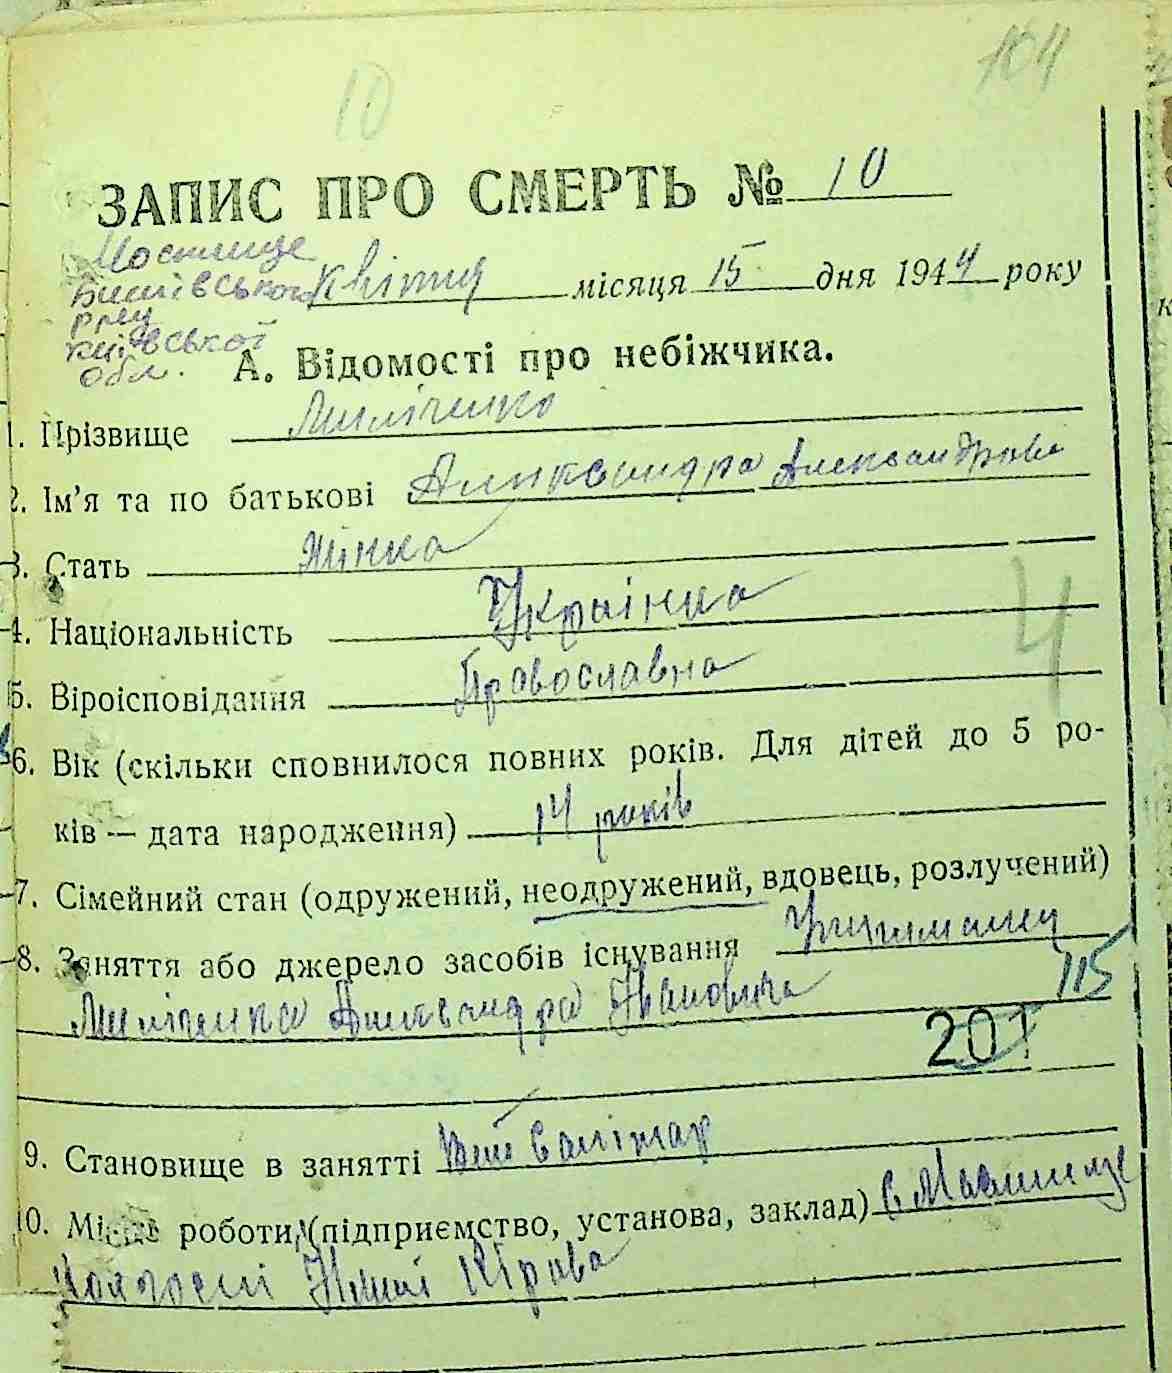 104
10
ЗАПИС ПРО СМЕРТЬ № 10
Мостище
Бишівського
р-ну
київської
обл.
квітня місяця 15 дня 1944 року
А. Відомості про небіжчика.
1. Прізвище Миліченко
2. Ім'я та по батькові Александра Александрова
3. Стать Жінка
4. Національність Українка
4
5. Віроісповідання Православна
6. Вік (скільки сповнилося повних років. Для дітей до 5 ро-
ків — дата народження) 14 років
7. Сімейний стан (одружений, неодружений, вдовець, розлучений)
8. Заняття або джерело засобів існування
115
Миліченка Александра Івановича
201
9. Становище в занятті Вет санітар
10. Місце роботи (підприємство, установа, заклад) с Мостище
колгоспі Кірова